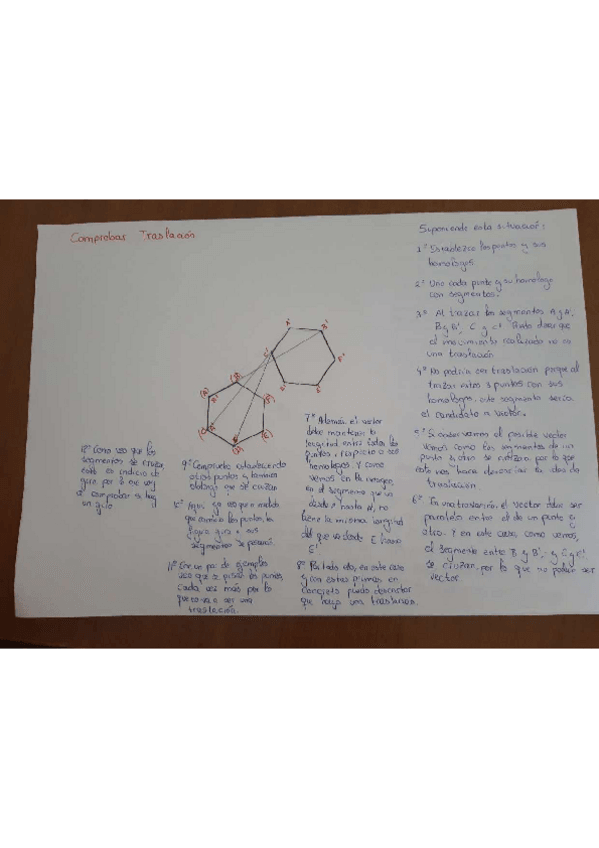 Comprobar Traslación
Suponiendo esta situación:
1º Establezco los puntos y sus
homologos
2º Uno cada punto y su homologo
con segmentos.
3º Al trazar los segmentos A y A',
B y B', C y C' Puedo decir que
el movimiento realizado no es
una traslación
4º No podría ser traslación porque al
trazar estos 3 puntos con sus
homologos, este segmento sería
el candidato a vector.
5º Si observamos el posible vector
vemos como los segmentos de un
punto a otro se cruzan por lo que
esto nos haría descartar la idea de
traslación
6º En una traslación, el vector debe ser
paralelo entre el de un punto y
otro. Y en este caso, como vemos,
el segmento entre B y B', y C y C'
se cruzan, por lo que no podría ser
vector
7º Además el vector
debe mantener la
longitud entre todos los
puntos, respecto a sus
homologos. Y como
vemos en la imagen,
en el segmento que va
desde A hasta A', no
tiene la misma longitud
del que va desde E hasta
E'
8º Por todo ello, en este caso
y con estas primas en
concreto puedo descartar
que haya una traslación.
9º Compruebo estableciendo
otros puntos y también
obtengo que se cruzan
10º Aquí, ya veo que a medida
que cambio los puntos, la
figura gira y sus
segmentos se
11º En un par de ejemplos
veo que se los puntos,
cada vez más por lo
que no va a ser una
traslación.
12º Como veo que los
segmentos se cruzan,
esto es indicio de
giro por lo que voy
a comprobar si hay
un giro